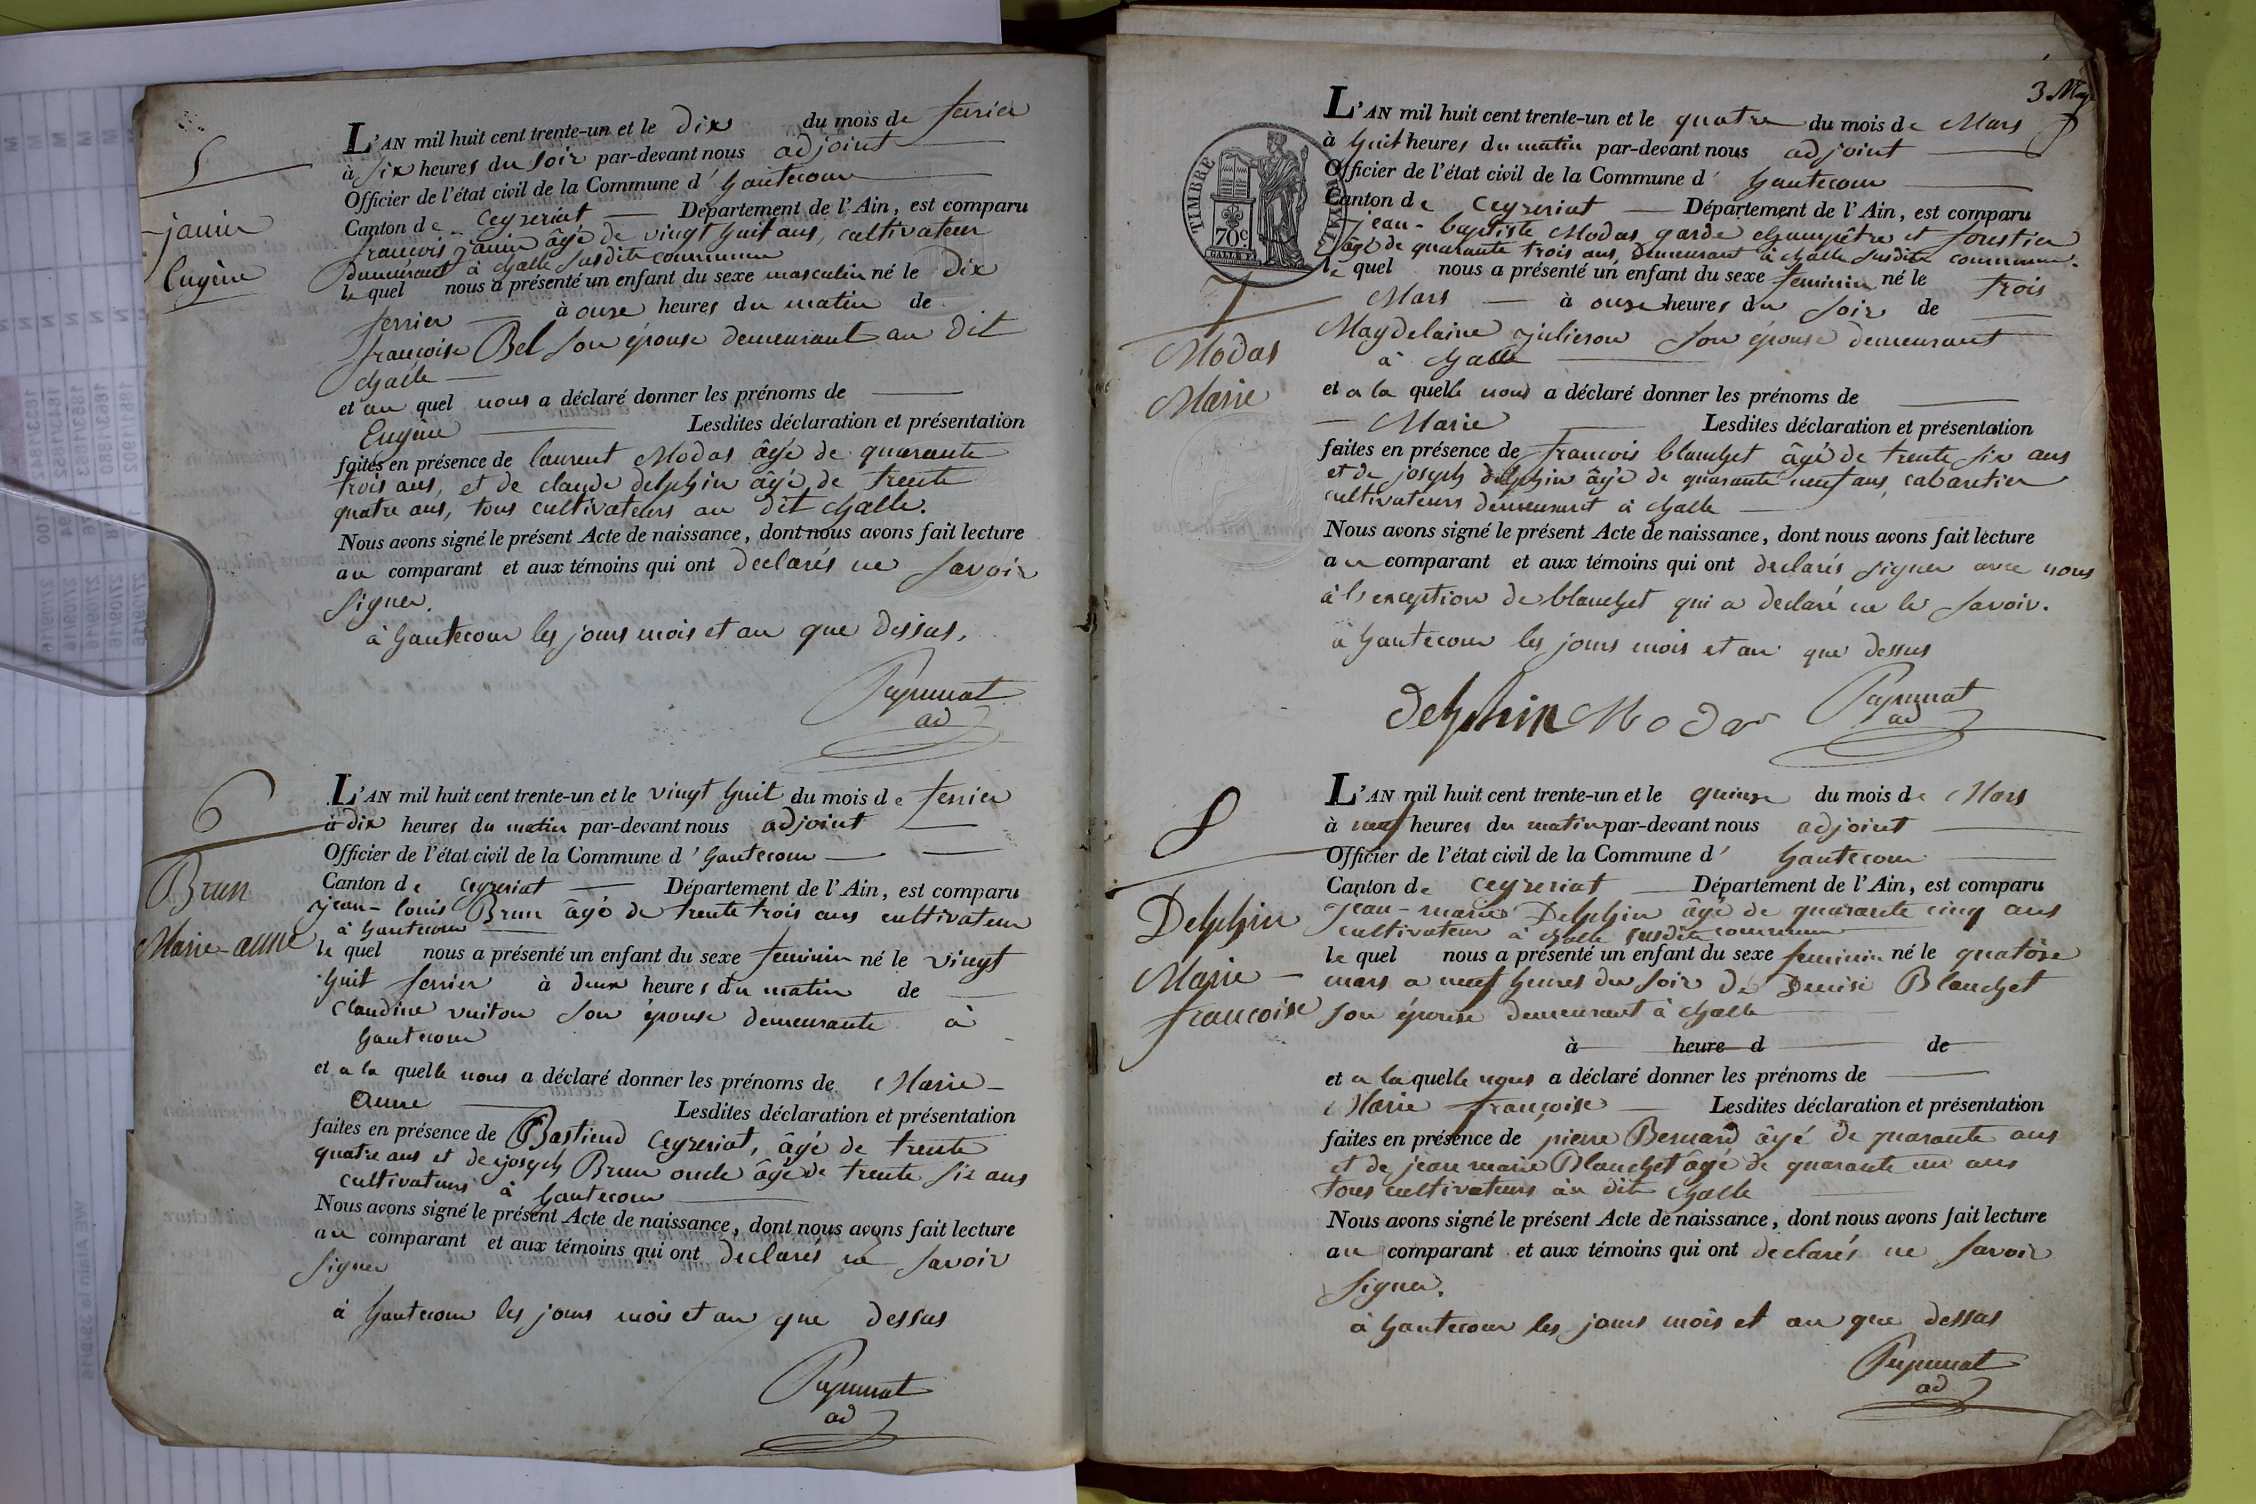 5
janin
Eugène
L'AN mil huit cent trente-un et le dix du mois de fevrier
à six heures du soir par-devant nous adjoint
Officier de l'état civil de la Commune d' hautecour
Canton de Ceyzeriat Département de l'Ain, est comparu
francois janin âgé de vingt huit ans, cultivateur
demeurant à challe susdite commune
le quel nous a présenté un enfant du sexe masculin né le dix
fevrier à onze heures du matin de
françoise Bel son épouse demeurant au dit
challe
et au quel nous a déclaré donner les prénoms de
Eugène Lesdites déclaration et présentation
faites en présence de laurent Modas âgé de quarante
trois ans, et de claude delphin âgé de trente
quatre ans, tous cultivateurs au dit challe.
Nous avons signé le présent Acte de naissance, dont nous avons fait lecture
au comparant et aux témoins qui ont declarés ne savoir
signer.
à hautecour les jours mois et an que dessus,
ad
6
Brun
Marie-anne
L'AN mil huit cent trente-un et le vingt huit du mois de fevrier
à dix heures du matin par-devant nous adjoint
Officier de l'état civil de la Commune d' hautecour
Canton de Ceyzeriat Département de l'Ain, est comparu
jean-louis Brun âgé de trente trois ans cultivateur
à hautecour
le quel nous a présenté un enfant du sexe feminin né le vingt
huit fevrier à deux heures du matin de
Claudine vuiton son épouse demeurante à
hautecour
et a la quelle nous a déclaré donner les prénoms de Marie-
anne Lesdites déclaration et présentation
faites en présence de Bastiend Ceyzeriat, âgé de trente
quatre ans et de joseph Brun oncle âgé de trente six ans
cultivateurs à hautecour
Nous avons signé le présent Acte de naissance, dont nous avons fait lecture
au comparant et aux témoins qui ont declarés ne savoir
signer
à hautecour les jours mois et an que dessus
ad
3
TIMBRE
70c
7
Modas
Marie
L'AN mil huit cent trente-un et le quatre du mois de Mars
à huit heures du matin par-devant nous adjoint
Officier de l'état civil de la Commune d' hautecour
Canton de Ceyzeriat Département de l'Ain, est comparu
jean-baptiste Modas garde champêtre et forestier
âgé de quarante trois ans, demeurant à challe susdite commune.
le quel nous a présenté un enfant du sexe feminin né le trois
Mars à onze heures du soir de
Magdelaine julieron son épouse demeurant
à challe
et a la quelle nous a déclaré donner les prénoms de
Marie Lesdites déclaration et présentation
faites en présence de francois blanchet âgé de trente six ans
et de joseph delphin âgé de quarante neuf ans, cabaretier
cultivateurs demeurant à challe
Nous avons signé le présent Acte de naissance, dont nous avons fait lecture
au comparant et aux témoins qui ont declarés signer avec nous
à l'exception de blanchet qui a declaré ne le savoir.
à hautecour les jours mois et an que dessus
delphin Modas
ad
8
Delphin
Marie-
francoise
L'AN mil huit cent trente-un et le quinze du mois de Mars
à neuf heures du matin par-devant nous adjoint
Officier de l'état civil de la Commune d' hautecour
Canton de Ceyzeriat Département de l'Ain, est comparu
jean-marie Delphin âgé de quarante cinq ans
cultivateur à challe susdite commune
le quel nous a présenté un enfant du sexe feminin né le quatorze
mars a neuf heures du soir de Denise Blanchet
son épouse demeurant à challe
à heure d de
et a la quelle nous a déclaré donner les prénoms de
Marie françoise Lesdites déclaration et présentation
faites en présence de pierre Bernard âgé de quarante ans
et de jean marie Blanchet âgé de quarante un ans
tous cultivateurs au dit challe
Nous avons signé le présent Acte de naissance, dont nous avons fait lecture
au comparant et aux témoins qui ont declarés ne savoir
signer.
à hautecour les jours mois et an que dessus
ad